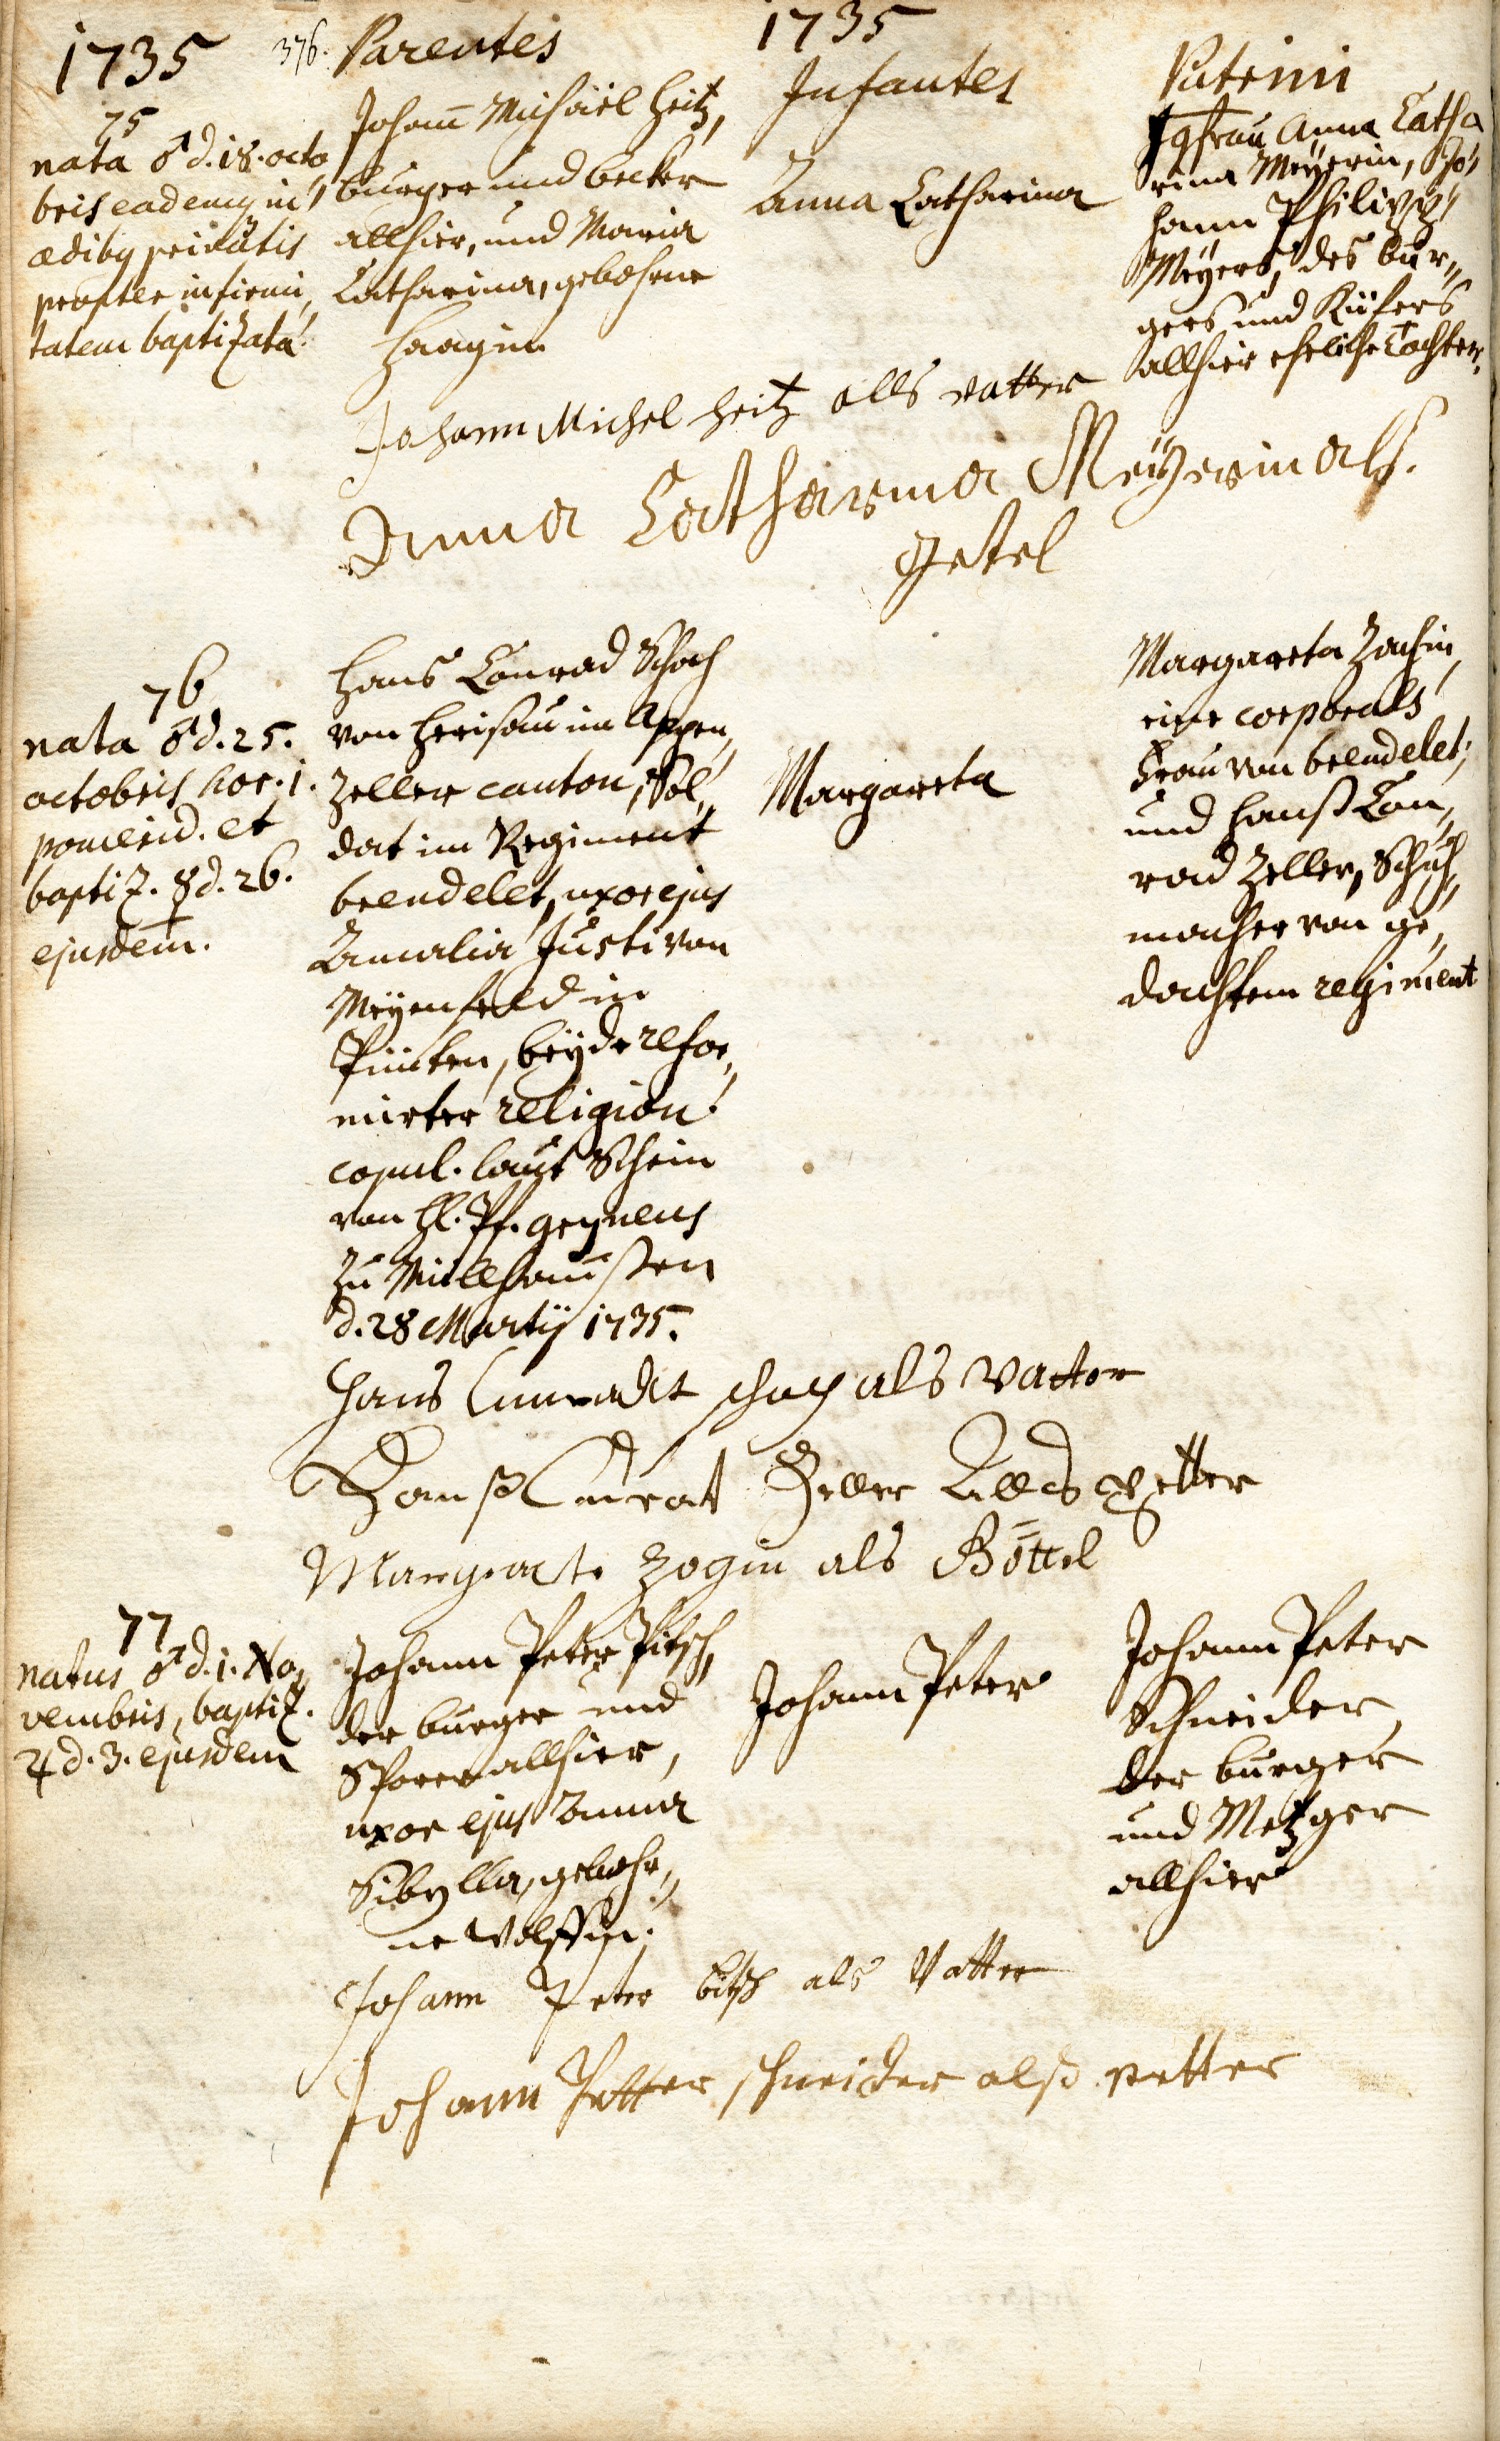 1735
376.
Parentes
1735
Infantes
Patrini
75
nata ♂ d. 18. octo
bris eademq in
ædibq privatis
propter infirmi„
tatem baptizata.
Johann Michäel Heitz,
burger und becker
allhier, und Maria
Catharina, gebohrne
Haagin
Anna Catharina
Jgfrau Anna Catha
rina Meyerin, Jo„
hann Philipp
Meyers, des bur„
gers und Küfers
allhier eheliche Tochter.
Johann Michel Heitz alls vatter
Anna Catharina Meyerin als.
getel
76
nata ♂ d. 25.
octobris hor. 1.
pomerid. et
baptiz. ☿ d. 26.
ejusdem.
Hans Conrad Schoch
von Herisau im Appen„
zeller canton, Sol„
dat im Regiment
brendelet, uxor ejus
Amalia Justi von
Meyenfeld in
Pünten, beyde refor„
mirter religion.
copul. laut Schein
von H. Pf.
zu Müllhaussen
d. 28 Martij 1735.
Margareta
Margareta Zochin,
eine corporals
frau von brendelet,
und Hanß Con„
rad Zeller, Schuh„
macher von ge„
dachtem regiment
Hans Cunradt schoch als Vatter
Hanß Cunrat Zeller Alls Petter
Margrete Zogin als Göttel
77
natus ♂ d. 1. No„
vembris, baptiz.
♃ d. 3. ejusdem
Johann Peter Pitsch,
der burger und
Sporer allhier,
uxor ejus Anna
Sibylla, gebohr„
ne Wolffin.
Johann Peter
Johann Peter
Schneider,
der burger
und Metzger
allhier
Johann Peter bitsch als Vatter
Johann Petter schneider alß petter